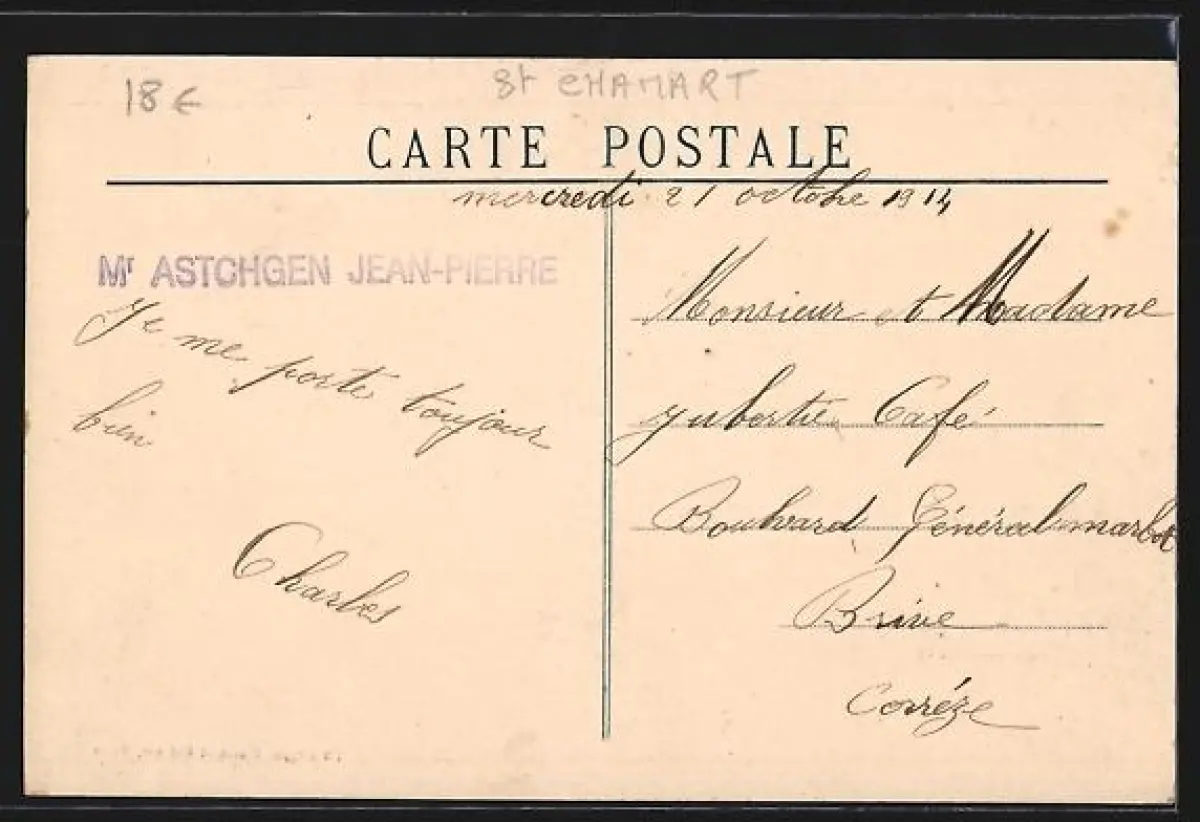 18 €
St CHAMART
CARTE POSTALE
mercredi 21 octobre 1914
Mr ASTCHGEN JEAN-PIERRE
Je me porte toujour
bien
Charles
Monsieur et Madame
Jubertie Café
Boulvard Général marbot
Brive
Corréze